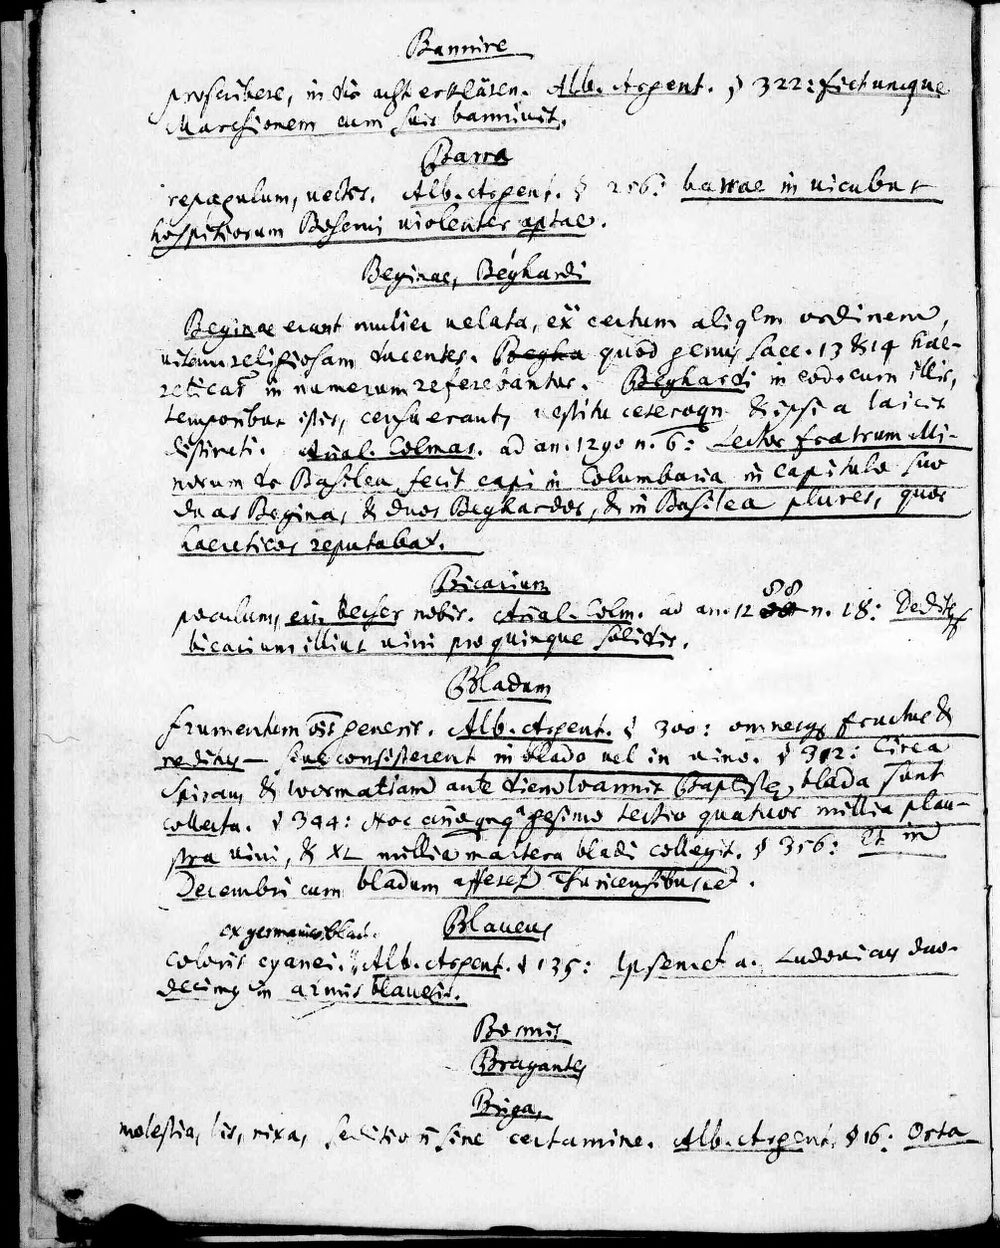 Bannire
proscribere, in die acht erklären. Alb. Argent. § 322: fictumque
Marchionem cum suis bannivit.
Barra
repagulum, vectis. Alb. Argent. § 256: barrae in vicubus
hospitiorum Bohemi violenter aptae.
Beginae, Beghardi
Beginae erant mulier velata, certum ordinem,
vitam religiosam ducentes. Begha quod genus saec. 13 & 14 hae-
reticas in numerum referebantur. Beghardi in eod. cum illis,
temporibus istis, censu erant, vestitu ceteroqn & ipsi a laicis
distincti. Annal. Colmar. ad an. 1290 n. 6: Lector fratrum Mi-
norum de Basilea fecit capi in Columbaria in capitulo suo
duas Beginas, & duos Beghardos, & in Basilea plures, quos
haereticos reputabat.
Bicarium
poculum, ein becher nobis. Annal. Colm. ad an. 12 88 n. 18: Dedit
bicarium illius vini pro quinque solidis.
Bladum
frumentum generis. Alb. Argent. § 300: omnesq; fructus &
reditus — sive consisterent in blado vel in vino. § 312: Circa
Spiram & Wormatiam ante diem Ioannis Baptistae blada sunt
collecta. § 344: Hoc anno tertio quatuor millia plau-
stra vini, & XL millia maltera bladi collegit. § 356: Et in
Decembri cum bladum afferet Thuricensibus et.
Blaveus
ex germanico blau.
coloris cyanei. Alb. Argent. § 135: Ipsemet a. Ludovicus duo-
decimus in armis blaveis.
Bornus
Bragantes
Briga,
molestia, lis, rixa, seditio sine certamine. Alb. Argent. § 16: Orta